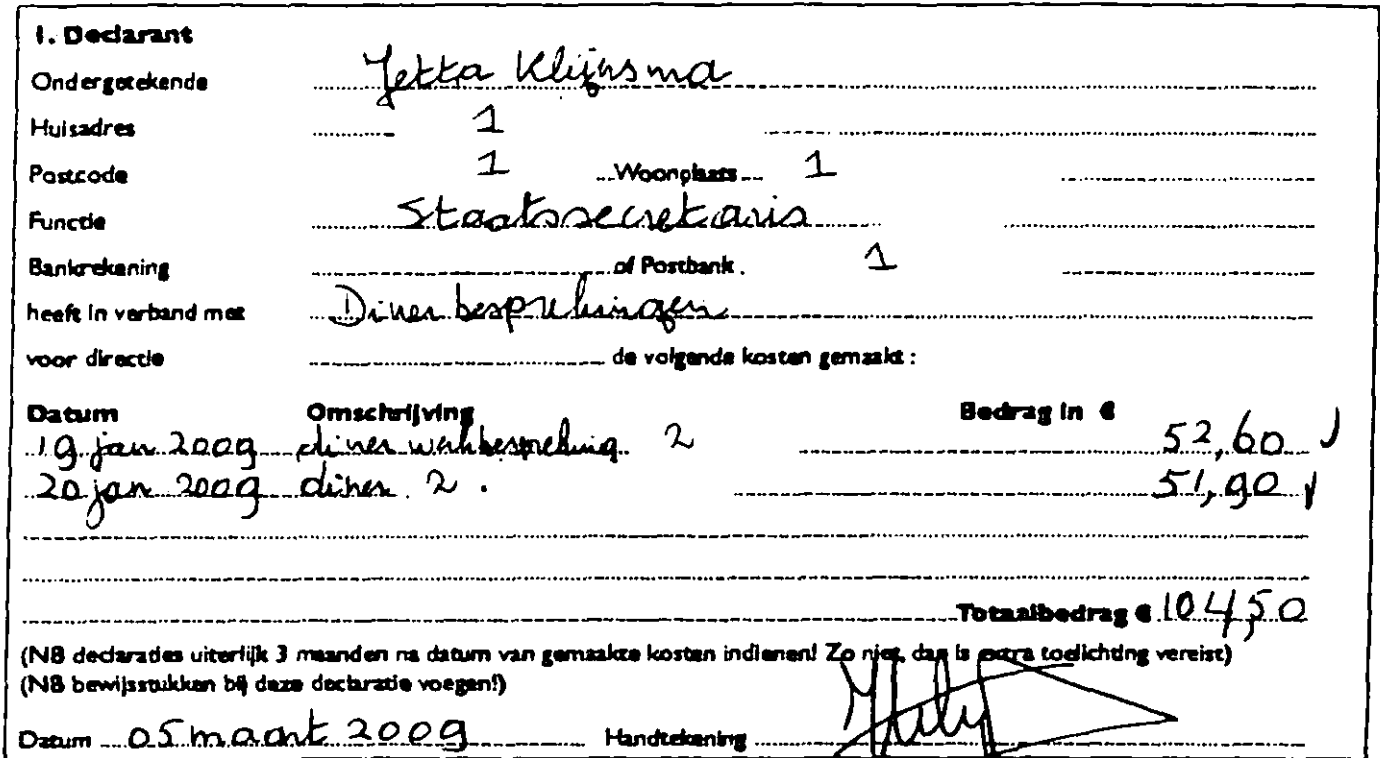 1. Declarant
Ondergetekende Jetta Klijnsma
Huisadres 1
Postcode 1 Woonplaats 1
Functie Staatssecretaris
Bankrekening of Postbank. 1
heeft in verband met Dinerbesprekingen
voor directie de volgende kosten gemaakt:
Datum Omschrijving Bedrag in €
19 jan 2009 diner werkbespreking 2 52,60
20 jan 2009 diner 2. 51,90
Totaalbedrag € 104,50
(NB declaraties uiterlijk 3 maanden na datum van gemaakte kosten indienen! Zo niet, dan is extra toelichting vereist)
(NB bewijsstukken bij deze declaratie voegen!)
Datum 05 maart 2009 Handtekening